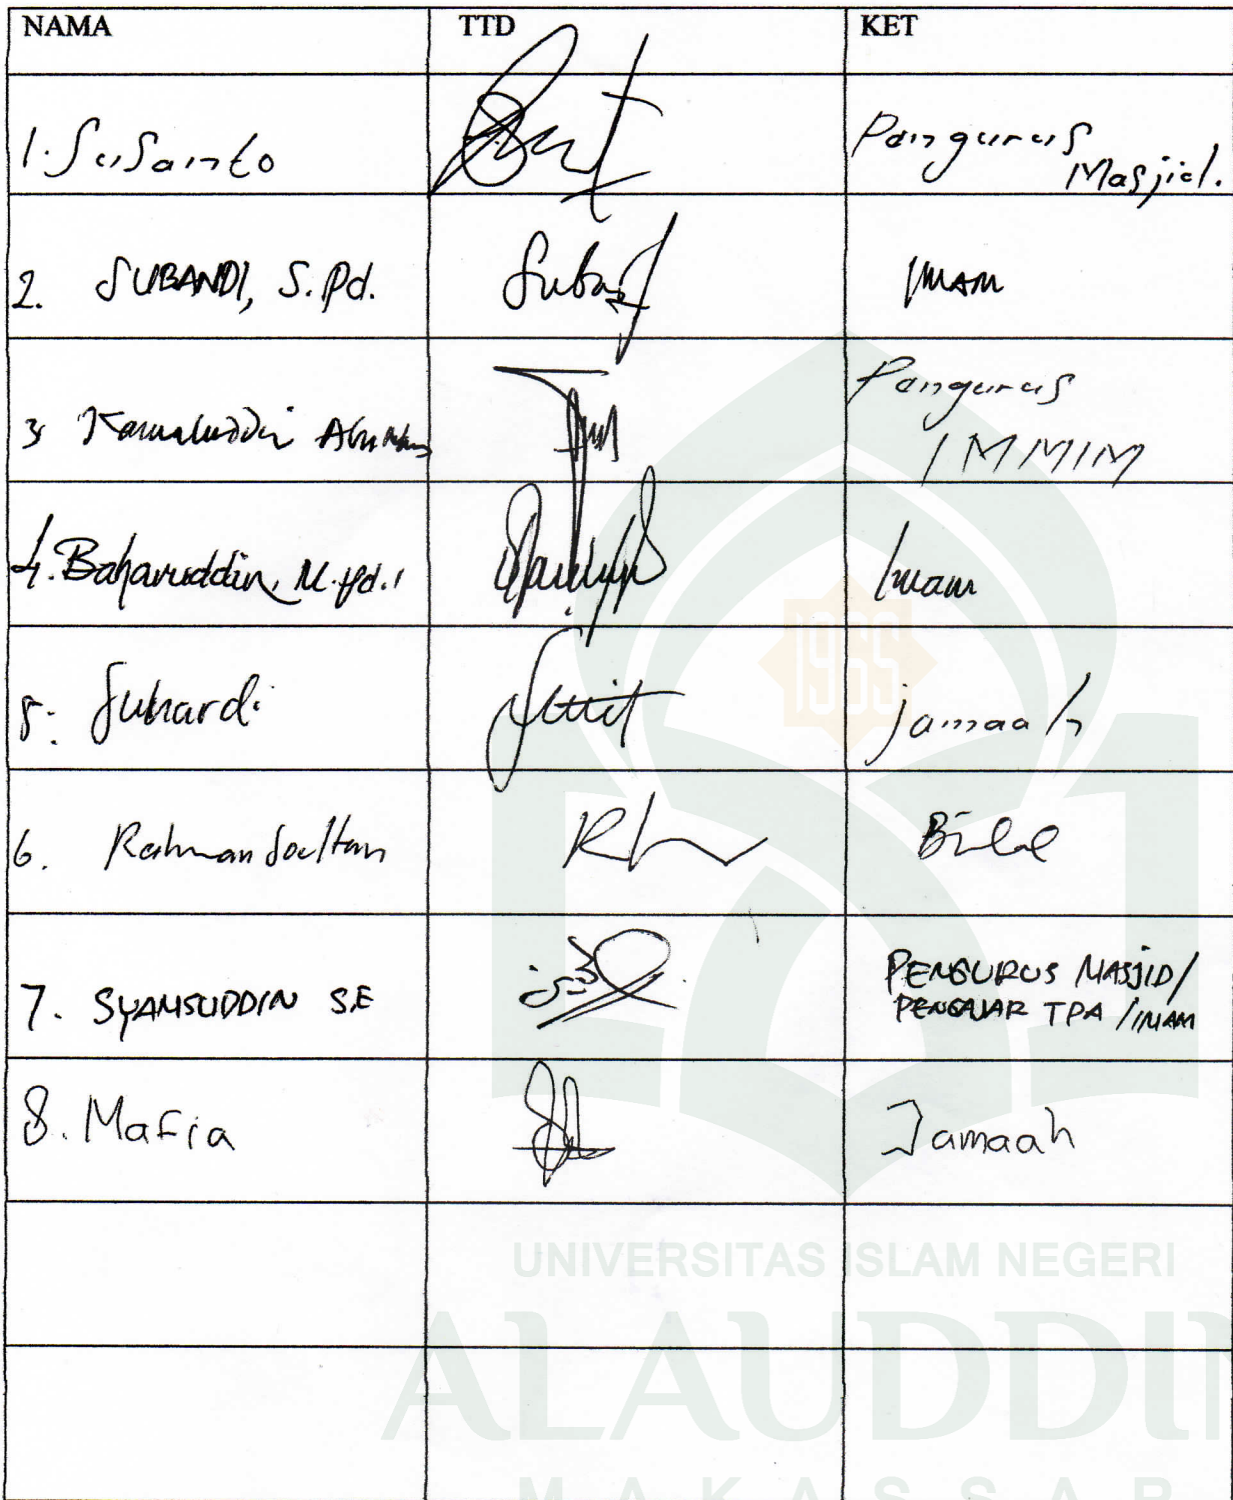 NAMA TTD KET
1. Susanto Pengurus
Masjid.
2. SUBANDI, S.Pd. Subandi IMAM
3 Kamaluddin Pengurus
IMMIM
4. Baharuddin, M.Pd.I Imam
5. Suhardi jamaah
6. Rahman Soultan Bilal
7. SYAMSUDDIN SE PENGURUS MASJID/
PENGAJAR TPA /IMAM
8. Mafia Jamaah
1965
UNIVERSITAS ISLAM NEGERI
ALAUDDIN
MAKASSAR